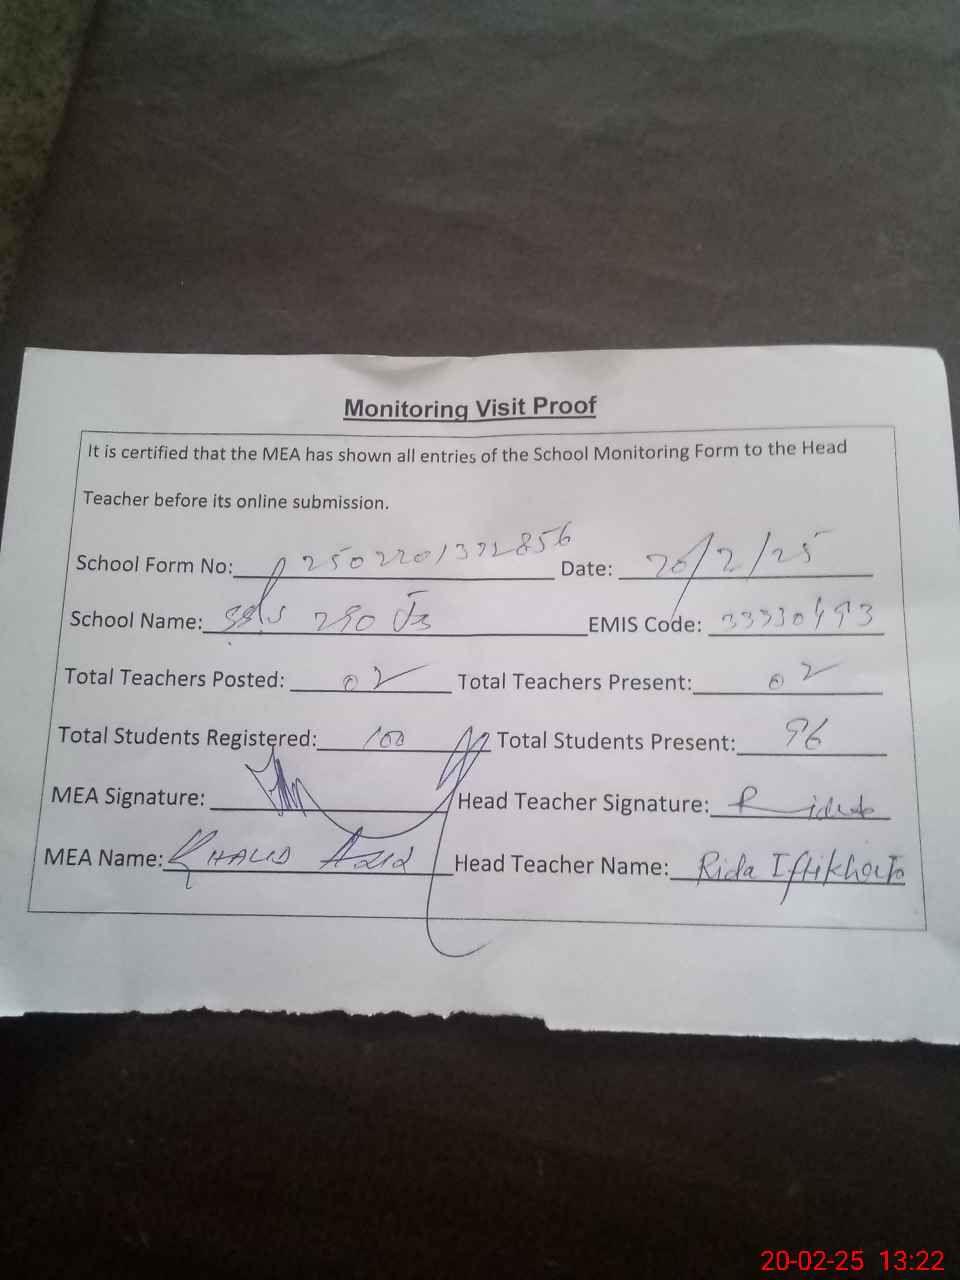 Monitoring Visit Proof
It is certified that the MEA has shown all entries of the School Monitoring Form to the Head
Teacher before its online submission.
School Form No: 2502201332856 Date: 20/2/25
School Name: 290 EMIS Code: 33330493
Total Teachers Posted: 02 Total Teachers Present: 02
Total Students Registered: 100 Total Students Present: 96
MEA Signature: Head Teacher Signature: Rida
MEA Name: KHALID AZIZ Head Teacher Name: Rida Iftikhar
20-02-25 13:22